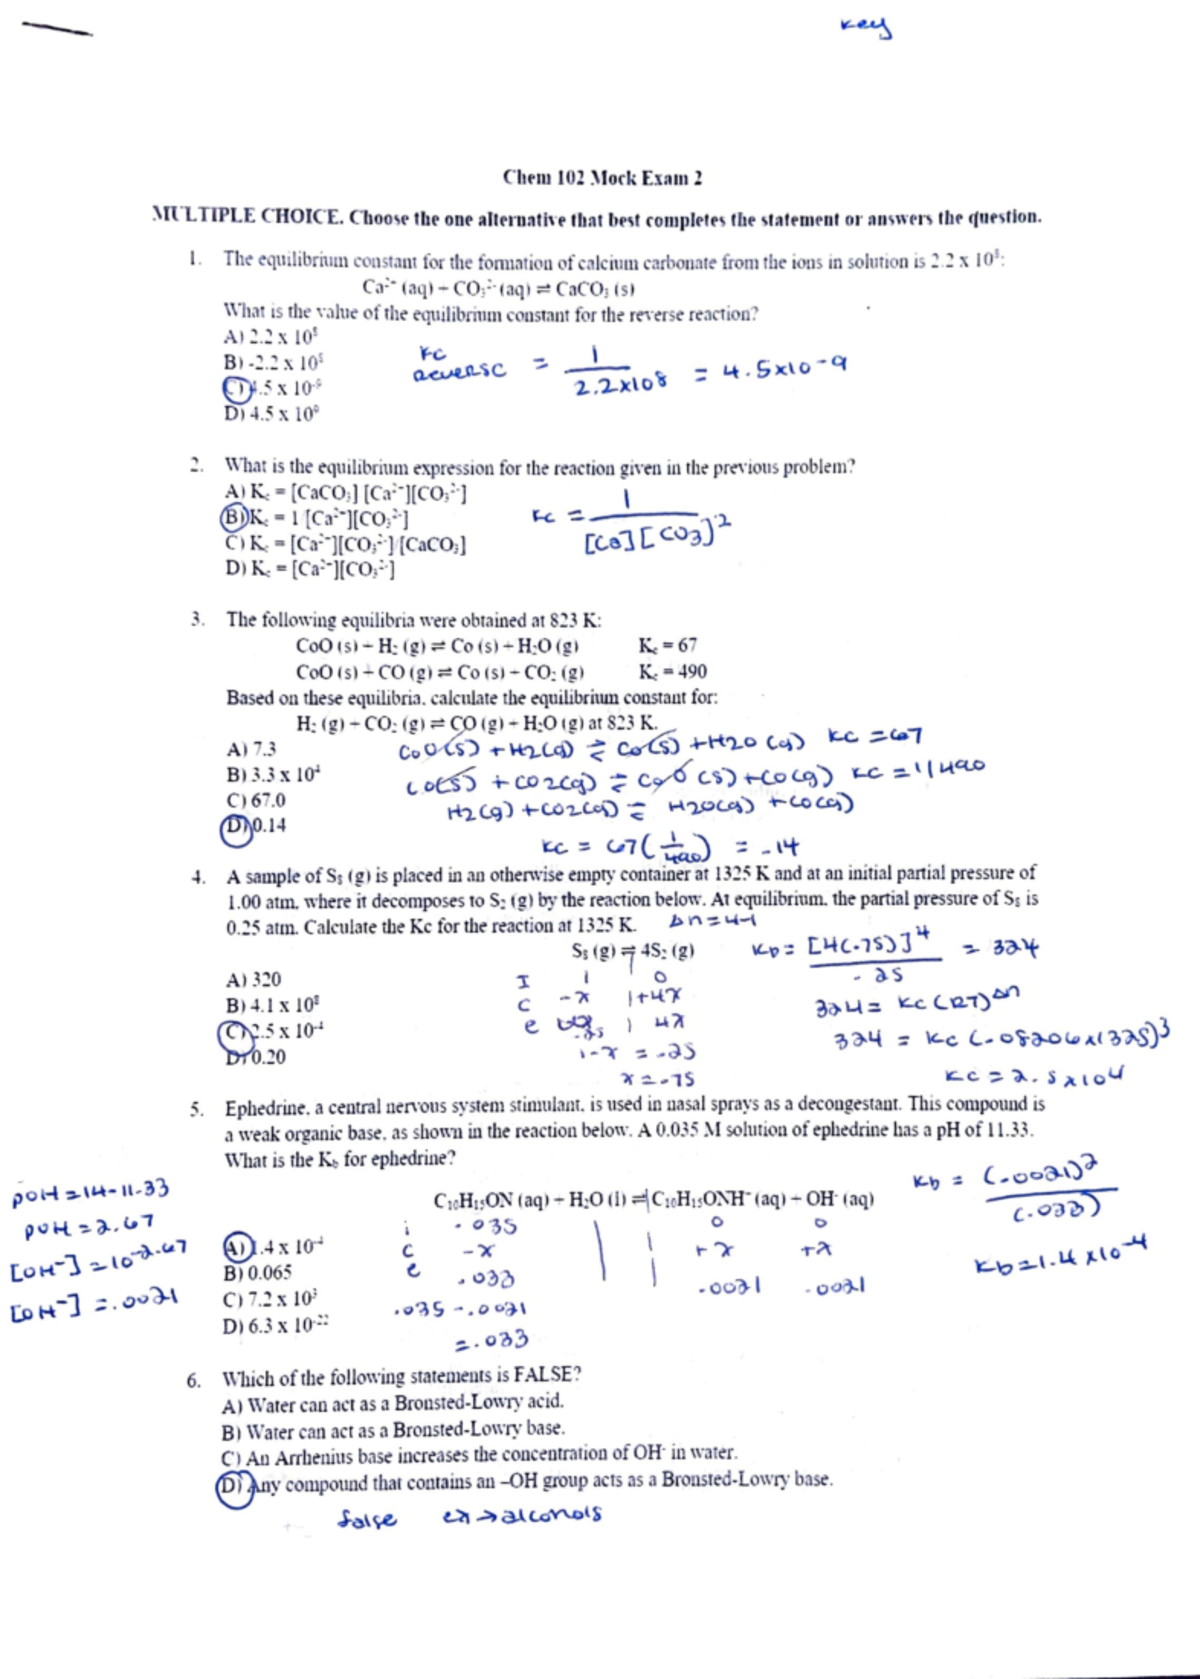 key
Chem 102 Mock Exam 2
MULTIPLE CHOICE. Choose the one alternative that best completes the statement or answers the question.
1. The equilibrium constant for the formation of calcium carbonate from the ions in solution is 2.2 x 10⁸:
Ca²⁺ (aq) + CO₃²⁻ (aq) ⇌ CaCO₃ (s)
What is the value of the equilibrium constant for the reverse reaction?
A) 2.2 x 10⁸
B) -2.2 x 10⁸
C) 4.5 x 10⁻⁹
D) 4.5 x 10⁹
Kc reverse = 1 / 2.2x10⁸ = 4.5x10⁻⁹
2. What is the equilibrium expression for the reaction given in the previous problem?
A) Kc = [CaCO₃] [Ca²⁺][CO₃²⁻]
B) Kc = 1 [Ca²⁺][CO₃²⁻]
C) Kc = [Ca²⁺][CO₃²⁻]/[CaCO₃]
D) Kc = [Ca²⁺][CO₃²⁻]
Kc = 1 / [Ca][CO₃]⁻²
3. The following equilibria were obtained at 823 K:
CoO (s) + H₂ (g) ⇌ Co (s) + H₂O (g) Kc = 67
CoO (s) + CO (g) ⇌ Co (s) + CO₂ (g) Kc = 490
Based on these equilibria, calculate the equilibrium constant for:
H₂ (g) + CO₂ (g) ⇌ CO (g) + H₂O (g) at 823 K.
A) 7.3
B) 3.3 x 10⁴
C) 67.0
D) 0.14
CoO(s) + H2(g) ⇌ Co(s) + H2O (g) Kc = 67
Co(s) + CO2(g) ⇌ CoO (s) + CO(g) Kc = 1/490
H2(g) + CO2(g) ⇌ H2O(g) + CO(g)
Kc = 67(1/490) = .14
4. A sample of S₈ (g) is placed in an otherwise empty container at 1325 K and at an initial partial pressure of
1.00 atm, where it decomposes to S₂ (g) by the reaction below. At equilibrium, the partial pressure of S₈ is
0.25 atm. Calculate the Kc for the reaction at 1325 K. Δn=4-1
S₈ (g) ⇌ 4S₂ (g)
A) 320
B) 4.1 x 10⁸
C) 2.5 x 10⁻⁴
D) 0.20
I 1 0
C -x | +4x
e .25 | 4x
1-x = .25
x = .75
Kp = [4(.75)]⁴ / .25 = 324
324 = Kc (RT)^Δn
324 = Kc (.08206x1325)³
Kc = 2.5x10⁴
5. Ephedrine, a central nervous system stimulant, is used in nasal sprays as a decongestant. This compound is
a weak organic base, as shown in the reaction below. A 0.035 M solution of ephedrine has a pH of 11.33.
What is the Kb for ephedrine?
C₁₀H₁₅ON (aq) + H₂O (l) ⇌ C₁₀H₁₅ONH⁺ (aq) + OH⁻ (aq)
A) 1.4 x 10⁻⁴
B) 0.065
C) 7.2 x 10³
D) 6.3 x 10⁻²²
pOH = 14-11.33
pOH = 2.67
[OH⁻] = 10^-2.67
[OH⁻] = .0021
i .035 0 0
C -x +x +x
e .033 .0021 .0021
.035 - .0021
= .033
Kb = (.0021)² / (.033)
Kb = 1.4 x10⁻⁴
6. Which of the following statements is FALSE?
A) Water can act as a Bronsted-Lowry acid.
B) Water can act as a Bronsted-Lowry base.
C) An Arrhenius base increases the concentration of OH⁻ in water.
D) Any compound that contains an –OH group acts as a Bronsted-Lowry base.
false ex → alcohols